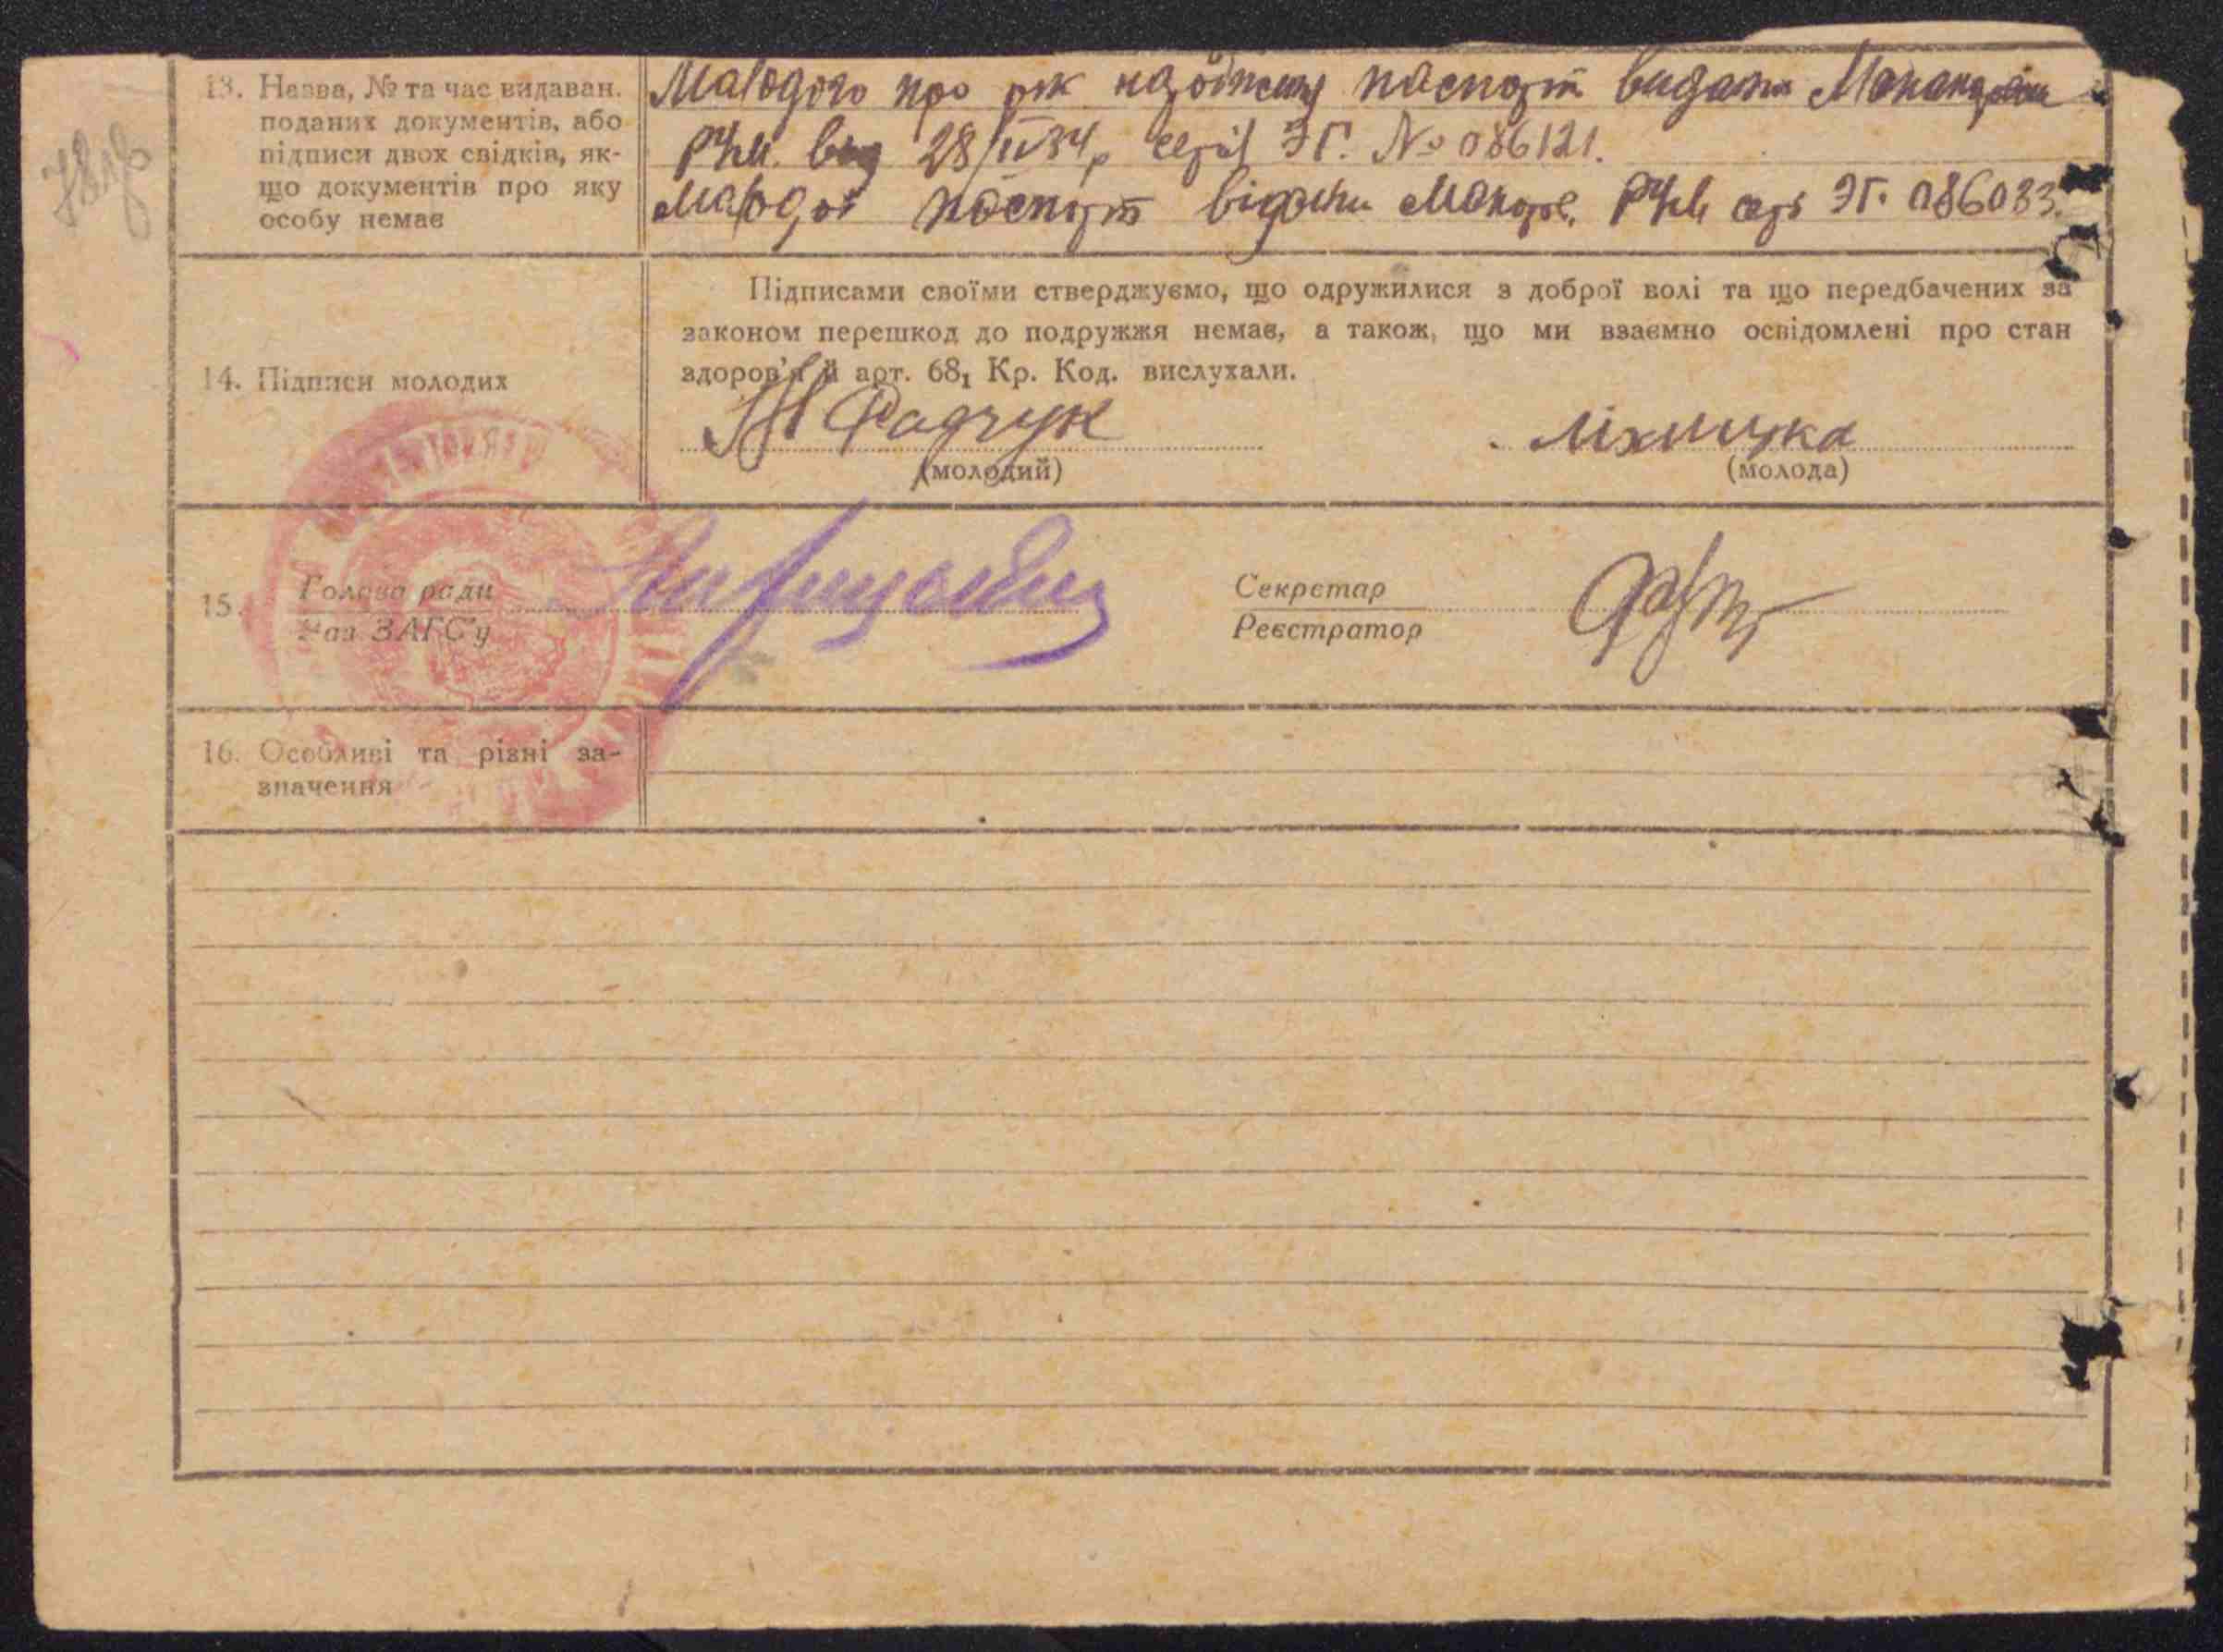 13. Назва, № та час видаван.
поданих документів, або
підписи двох свідків, як-
що документів про яку
особу немає
Малодого про рік паспорт видани
РЧМ. від 28/II 34 р серії ЭГ. № 086121.
Малодої паспорт видани Макар. РЧМ сері ЭГ. 086083.
14. Підписи молодих
Підписами своїми стверджуємо, що одружилися з доброї волі та що передбачених за
законом перешкод до подружжя немає, а також, що ми взаємно освідомлені про стан
здоров'я й арт. 68₁ Кр. Код. вислухали.
Радчук
(молодий)
Ліхницка
(молода)
15. Голова ради
Зав ЗАГС'у
Секретар
Реєстратор
16. Особливі та різні за-
значення